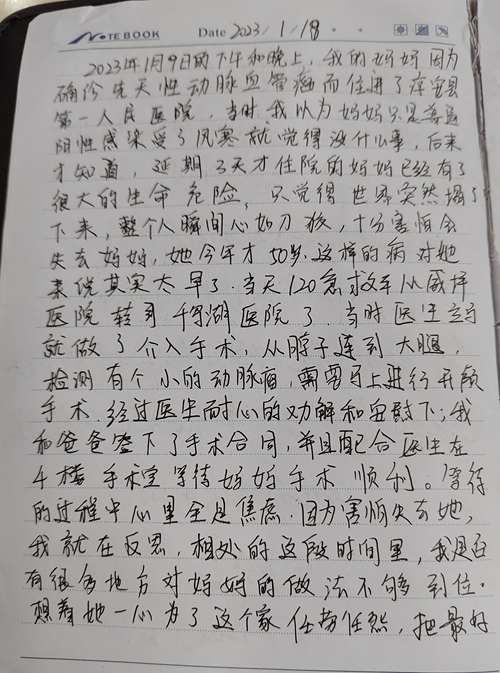 NOTE BOOK Date 2023/1/18
2023年1月9日的下午和晚上，我的妈妈因为
确诊先天性动脉血管瘤而住进了淳安县
第一人民医院，当时我以为妈妈只是普通
阳性感染受了风寒就觉得没什么事，后来
才知道，延期3天才住院的妈妈已经有了
很大的生命危险，只觉得世界突然塌了
下来，整个人瞬间心如刀绞，十分害怕会
失去妈妈，她今年才50岁，这样的病对她
来说其实太早了。当天120急救车从威坪
医院转到千岛湖医院了，当时医生立马
就做了介入手术，从脖子连到大腿，
检测有个小的动脉瘤，需要马上进行开颅
手术，经过医生耐心的劝解和安慰下；我
和爸爸签下了手术合同，并且配合医生在
4楼手术室等待妈妈手术顺利。等待
的过程中心里全是焦虑，因为害怕失去她，
我就在反思，相处的这段时间里，我是否
有很多地方对妈妈的做法不够到位。
想着她一心为了这个家任劳任怨，把最好